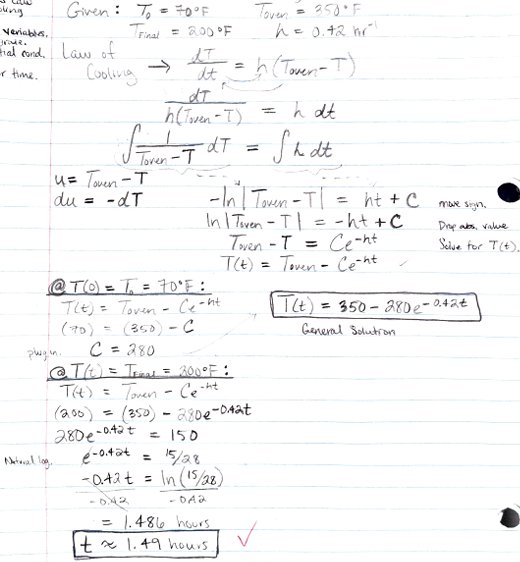 Law
cooling
variables,
tial cond.
r time.
Given: T₀ = 70°F Toven = 350°F
TFinal = 200°F h = 0.42 hr⁻¹
Law of Cooling → dT/dt = h(Toven - T)
dT/h(Toven - T) = h dt
∫ 1/Toven - T dT = ∫ h dt
u = Toven - T
du = -dT
-ln|Toven - T| = ht + C move sign.
ln|Toven - T| = -ht + C Drop abs. value
Toven - T = Ce^-ht Solve for T(t).
T(t) = Toven - Ce^-ht
@ T(0) = T₀ = 70°F:
T(t) = Toven - Ce^-ht
(70) = (350) - C
plug in. C = 280
T(t) = 350 - 280e^-0.42t
General Solution
@ T(t) = TFinal = 200°F:
T(t) = Toven - Ce^-ht
(200) = (350) - 280e^-0.42t
280e^-0.42t = 150
Natural log. e^-0.42t = 15/28
-0.42t = ln(15/28)
-0.42 -0.42
= 1.486 hours
t ≈ 1.49 hours ✓